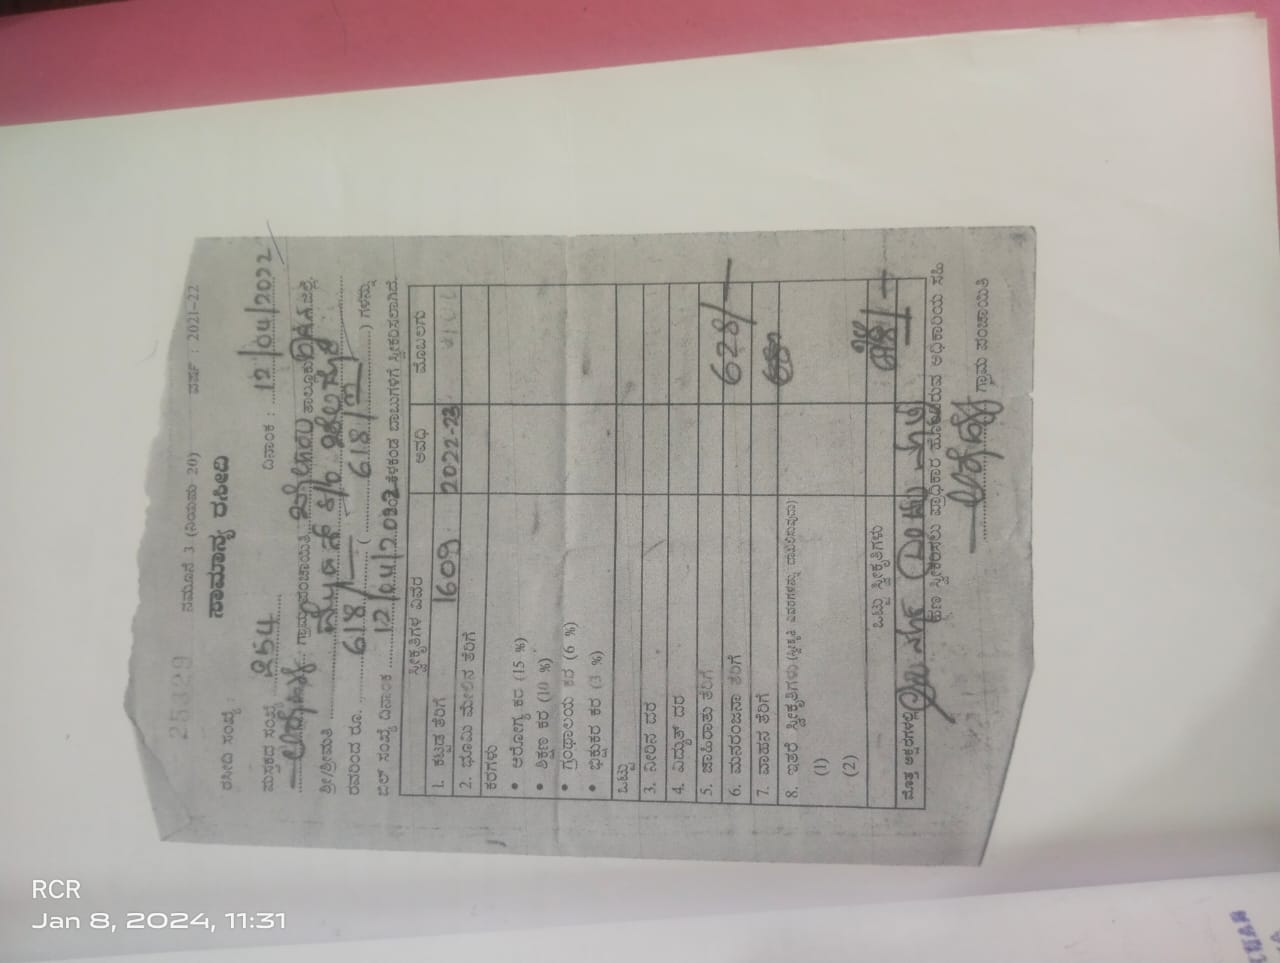 25329 ನಮೂನೆ 3 (ನಿಯಮ 20) ವರ್ಷ : 2021-22
ಸಾಮಾನ್ಯ ರಸೀದಿ
ರಸೀದಿ ಸಂಖ್ಯೆ :
ಪುಸ್ತಕದ ಸಂಖ್ಯೆ 254 ದಿನಾಂಕ : 12/04/2022
ಗ್ರಾಮ ಪಂಚಾಯಿತಿ, ತಾಲ್ಲೂಕು
ಶ್ರೀ/ಶ್ರೀಮತಿ
ರವರಿಂದ ರೂ. 618/- ( 618/- ) ಗಳನ್ನು
ಬಿಲ್ ಸಂಖ್ಯೆ ದಿನಾಂಕ 12/04/2022 ಕೆಳಕಂಡ ಬಾಬುಗಳಿಗೆ ಸ್ವೀಕರಿಸಲಾಗಿದೆ.
ಸ್ವೀಕೃತಿಗಳ ವಿವರ ಅವಧಿ ಮೊಬಲಗು
1. ಕಟ್ಟಡ ತೆರಿಗೆ 1609 2022-23
2. ಭೂಮಿ ಮೇಲಿನ ತೆರಿಗೆ
ಕರಗಳು
• ಆರೋಗ್ಯ ಕರ (15 %)
• ಶಿಕ್ಷಣ ಕರ (10 %)
• ಗ್ರಂಥಾಲಯ ಕರ (6 %)
• ಭಿಕ್ಷುಕರ ಕರ (3 %)
ಒಟ್ಟು
3. ನೀರಿನ ದರ
4. ವಿದ್ಯುತ್ ದರ
5. ಜಾಹಿರಾತು ತೆರಿಗೆ
6. ಮನರಂಜನಾ ತೆರಿಗೆ 628/-
7. ವಾಹನ ತೆರಿಗೆ
8. ಇತರೆ ಸ್ವೀಕೃತಿಗಳು (ಸ್ವೀಕೃತಿ ವಿವರಗಳನ್ನು ದಾಖಲಿಸುವುದು)
(1)
(2)
ಒಟ್ಟು ಸ್ವೀಕೃತಿಗಳು
ಮೊತ್ತ ಅಕ್ಷರಗಳಲ್ಲಿ
ಹಣ ಸ್ವೀಕರಿಸಲು ಪ್ರಾಧಿಕಾರ ಹೊಂದಿರುವ ಅಧಿಕಾರಿಯ ಸಹಿ
ಗ್ರಾಮ ಪಂಚಾಯಿತಿ
RCR
Jan 8, 2024, 11:31